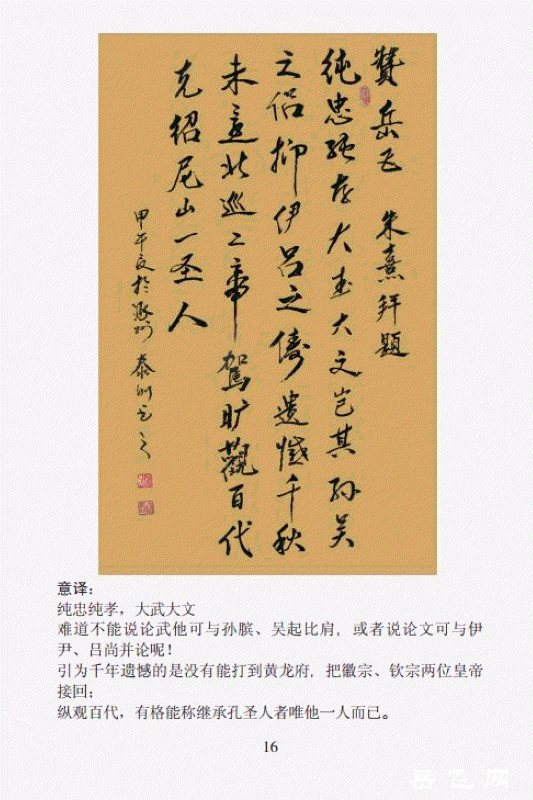 赞岳飞 朱熹拜題
纯忠纯孝大武大文岂其孙吴
之侣抑伊吕之俦遗憾千秋
未北巡二帝駕旷觀百代
克绍尼山一圣人
甲午夏於州
意译：
纯忠纯孝，大武大文
难道不能说论武他可与孙膑、吴起比肩，或者说论文可与伊
尹、吕尚并论呢！
引为千年遗憾的是没有能打到黄龙府，把徽宗、钦宗两位皇帝
接回；
纵观百代，有格能称继承孔圣人者唯他一人而已。
16
岳飞网